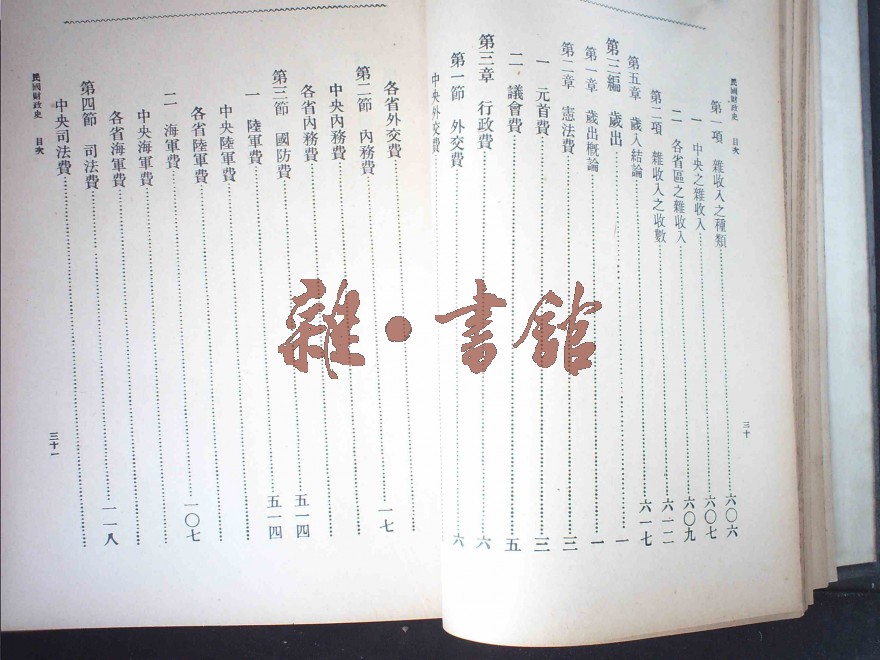 民國財政史　目次
第一項　雜收入之種類……六〇六
一　中央之雜收入……六〇七
二　各省區之雜收入……六〇九
第二項　雜收入之收數……六一二
第五章　歲入結論……六一七
第三編　歲出……一
第一章　歲出概論……一
第二章　憲法費……三
一　元首費……三
二　議會費……五
第三章　行政費……六
第一節　外交費……六
中央外交費……
三十
各省外交費……一七
第二節　內務費……
中央內務費……
各省內務費……五一四
第三節　國防費……五一四
一　陸軍費……
中央陸軍費……
各省陸軍費……一〇七
二　海軍費……
中央海軍費……
各省海軍費……一一八
第四節　司法費……
中央司法費……
民國財政史　目次
三十一
雜·書館